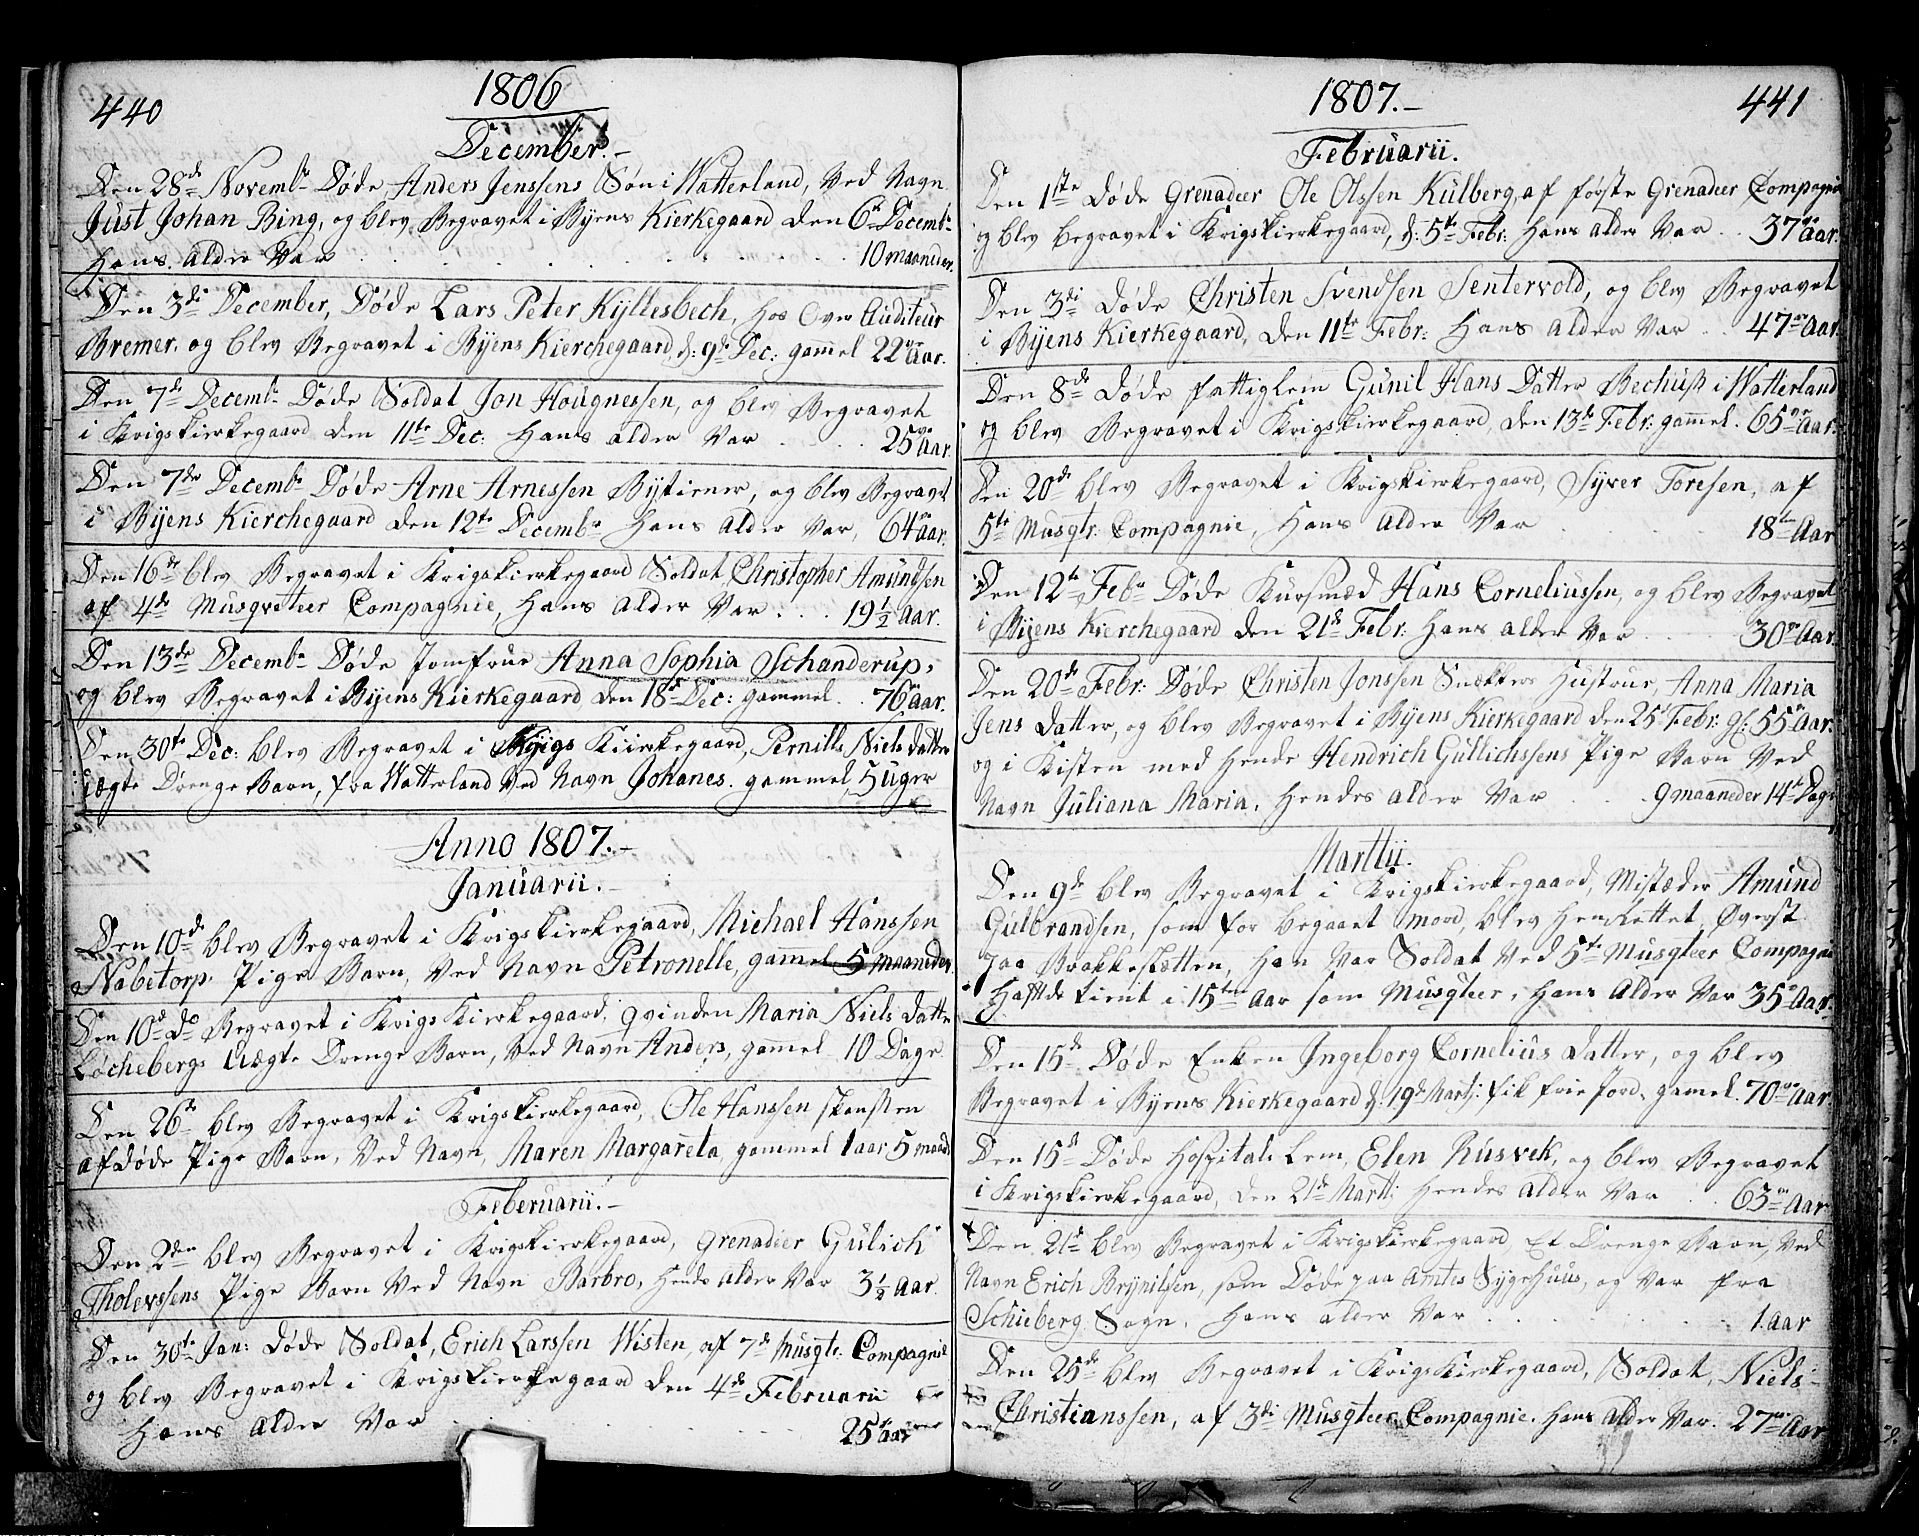 440
1806
December.
Den 28de Novembr Døde Anders Jenssens Søn i Watterland, Ved Navn
Just Johan Bing, og blev Begravet i Byens Kierkegaard den 6te Decembr
Hans Alder Var . . . 10 maaneder.
Den 3die December, Døde Lars Peter Kyllesbech, hos Over Auditeur
Bremer, og blev Begravet i Byens Kierchegaard, d: 9de Dec: gammel 22ve Aar.
Den 7de Decembr Døde Soldat Jon Hougnessen, og blev Begravet
i Krigskierkegaard den 11te Dec: Hans alder Var . . 25ve Aar.
Den 7de Decembr Døde Arne Arnessen Bytiener, og blev Begravet
i Byens Kierchegaard den 12te Decembr Hans Alder Var, 64 Aar.
Den 16de blev Begravet i Krigskierkegaard Soldat Christopher Amundsen
af 4de Musqveteer Compagnie, Hans Alder Var . . . 19 1/2 Aar.
Den 13de Decembr Døde Jomfrue Anna Sophia Schanderup,
og blev Begravet i Byens Kierkegaard, den 18de Dec: gammel . . 76 Aar.
Den 30te Dec: blev Begravet i Krigs Kiierkegaard, Pernille Niels datters
uægte Drenge Barn, fra Watterland Ved Navn Johanes. gammel, 5 uger
Anno 1807.
Januarii.
Den 10de blev Begravet i Krigskierkegaard, Michael Hanssen
Nabetorp Pige Barn, Ved Navn Petronelle, gammel 5 maaneder.
Den 10de do Begravet i Krigs Kierkegaard, qvinden Maria Niels Datter
Løchebergs Uægte Drenge Barn, Ved Navn Anders, gammel 10 Dage
Den 26de blev Begravet i Krigskierkegaard, Ole Hanssen skansten
afdøde Pige Barn, Ved Navn, Maren Margareta, gammel 1 aar 5 maand
Feberuarii.
Den 2den blev Begravet i Krigskierkegaard, Grenadeer Gulich
Tholevssens Pige Barn Ved Navn Barbro, Hends Alder Var 3 1/2 Aar.
Den 30te Jan: døde Soldat, Erich Larssen Wisten, af 7de Musqte: Compagnie
og blev Begravet i Krigskierkegaard den 4de Februarii
Hans Alder Var . . . 25 Aar
1807.
441
Februarii.
Den 1ste døde Grenadeer Ole Olssen Kulberg, af første Grenadeer Compagnie
og blev begravet i Krigskierkegaard, d: 5te Febr: Hans Alder Var . . 37ve Aar.
Den 3die døde Christen Svendsen Sentervold, og blev Begravet
i Byens Kierkegaard, den 11te Febr: Hans Alder Var . . 47ve Aar.
Den 8de døde fattiglem Gunil Hans Datter Bechust i Watterland
og blev Begravet i Krigskierkegaard, den 13de Febr: gammel. 65ve Aar.
Den 20de blev Begravet i Krigskierkegaard, Syver Toresen, af
5te Musqtr: Compagnie, Hans Alder Var . 18ten Aar
Den 12te Febr Døde Kursmed Hans Corneliussen, og blev Begravet
i Byens Kierchegaard den 21de Febr: Hans Alder Var . . 30ve Aar.
Den 20de Febr: Døde Christen Jonssen Snækkers Hustrue, Anna Maria
Jens datter, og blev Begravet i Byens Kierkegaard den 25de Febr: gl: 55ve Aar.
og i Kisten med hende Hendrich Gullichssens Pige Barn Ved
Navn Juliana Maria, Hendes Alder Var . . . 9 maaneder 14 Dage
Marttii.
Den 9de blev Begravet i Krigskierkegaard, Mistæder Amund
Gulbrandsen, som for begaaet mord, blev HenRettet Øverst
paa Brakkestætten, han Var Soldat Ved 5te Musqteer Compagnie
Haffde tient i 15ten Aar som Musqteer, Hans Alder Var 35ve Aar.
Den 15de Døde Enken Ingeborg Cornelius datter, og blev
Begravet i Byens Kierkegaard d: 19de Martj: fik frie Jord. gamel. 70ve Aar
Den 15de Døde Hospitals Lem, Elen Rusvek, og blev Begravet
i Krigskierkegaard, den 21de Martj: Hendes Alder Var . . 63ve Aar
Den 21de blev Begravet i Krigskierkegaard, Et Drenge Barn, Ved
Navn Erich Brynilsen, som Døde paa Amtes Sygehuus, og Var fra
Schieberg Sogn, Hans Alder Var . . . 1 Aar
Den 25de blev Begravet i Krigskierkegaard, Soldat, Niels
Christianssen, af 3die Musqteer Compagnie. Hans Alder Var. 27ve Aar